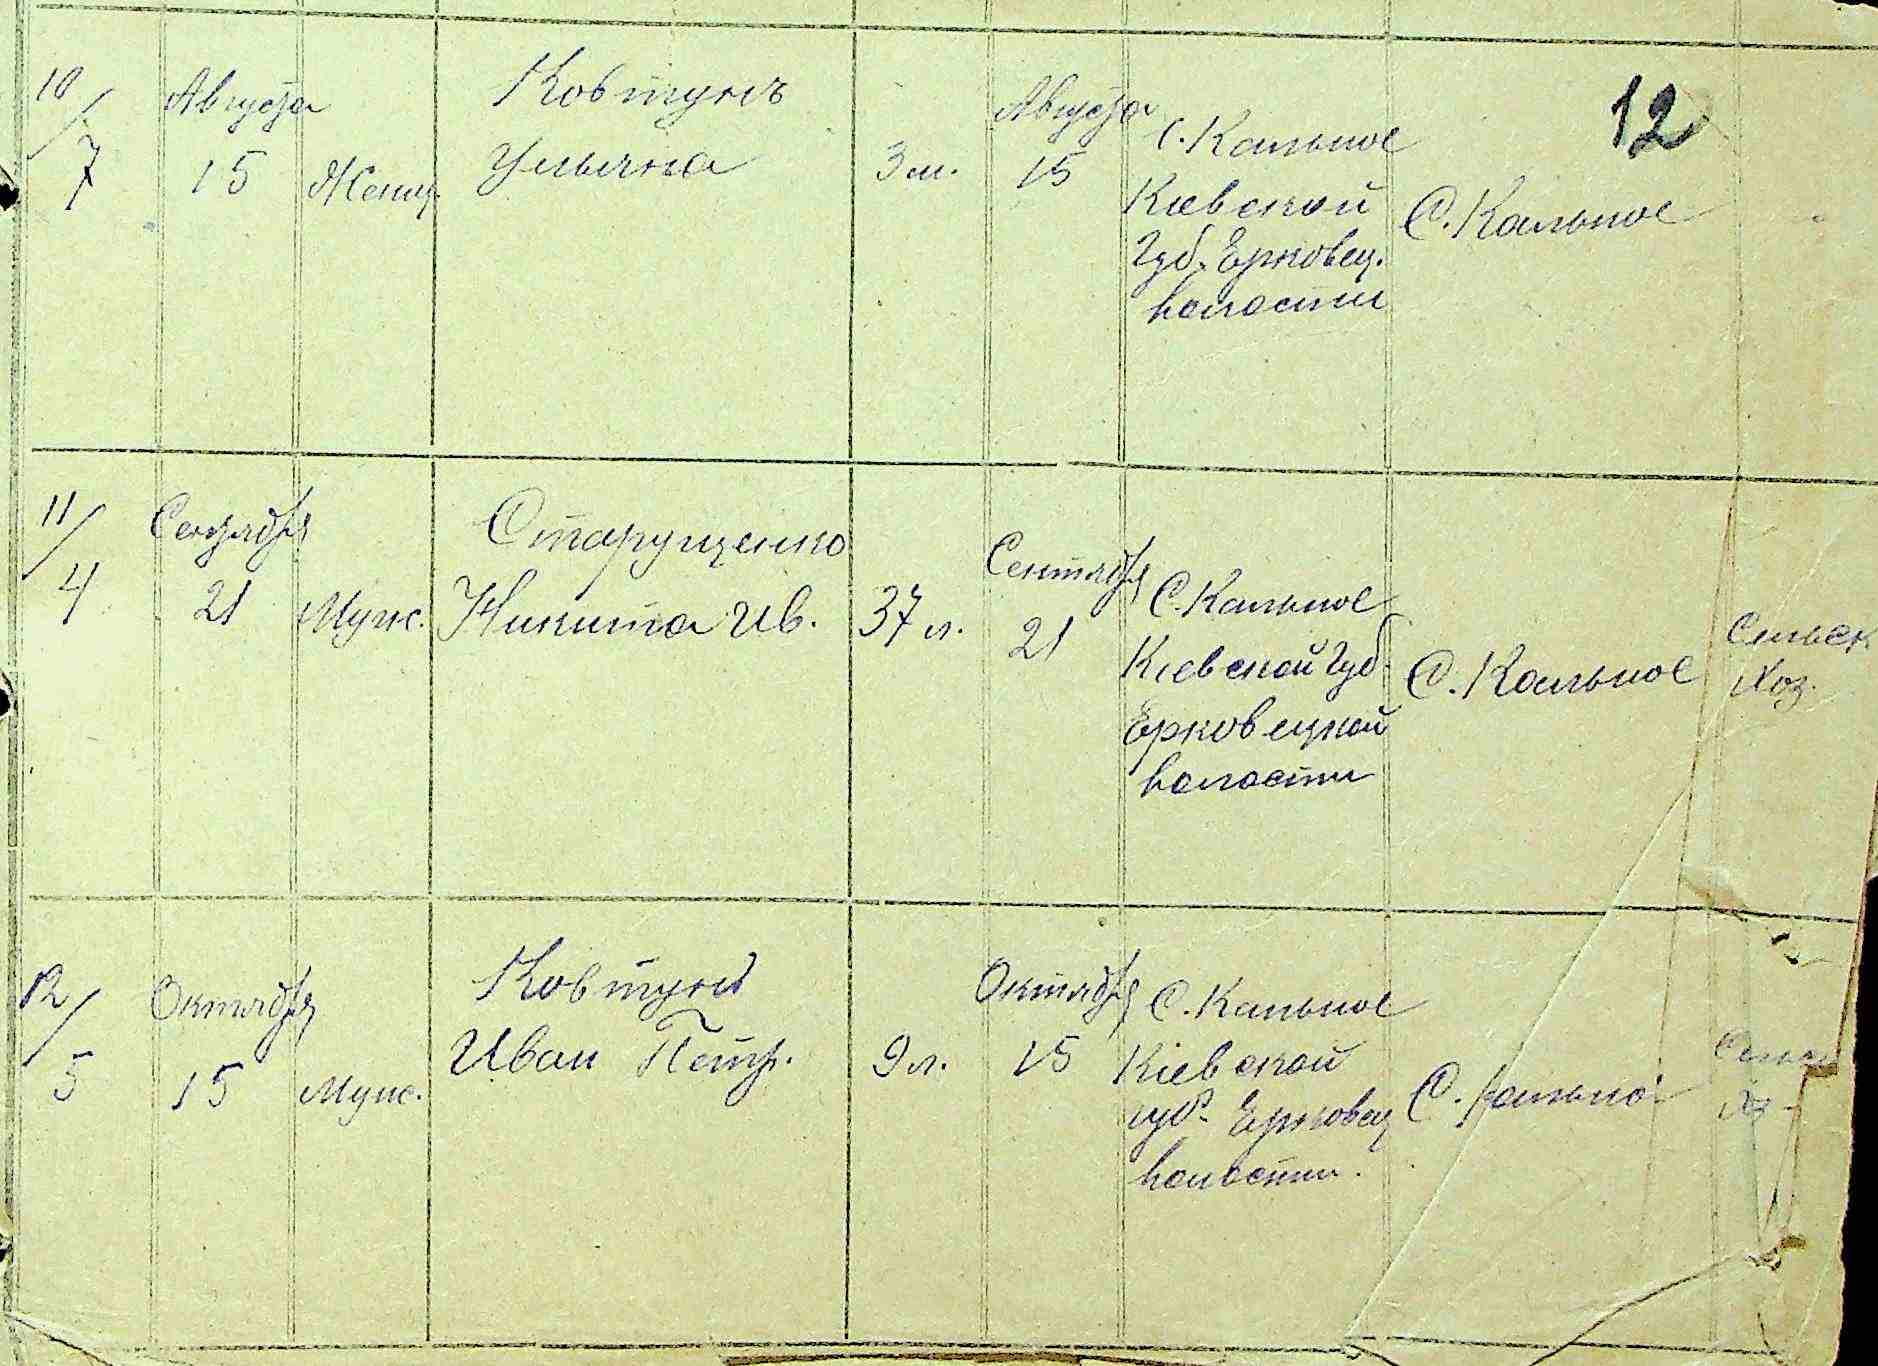 12
10/7
Августа
15
Женщ.
Ковтунъ
Ульяна
3 м.
Августа
15
С. Кальное
Киевской
Губ. Ерковец.
волости
С. Кальное
11/4
Сентября
21
Мужс.
Старущенко
Никита Ив.
37 л.
Сентября
21
С. Кальное
Киевской Губ.
Ерковецкой
волости
С. Кальное
Сельск
Хоз.
12/5
Октября
15
Мужс.
Ковтунъ
Иван Петр.
9 л.
Октября
15
С. Кальное
Кіевской
губ. Ерковец
волости.
С. Кальное